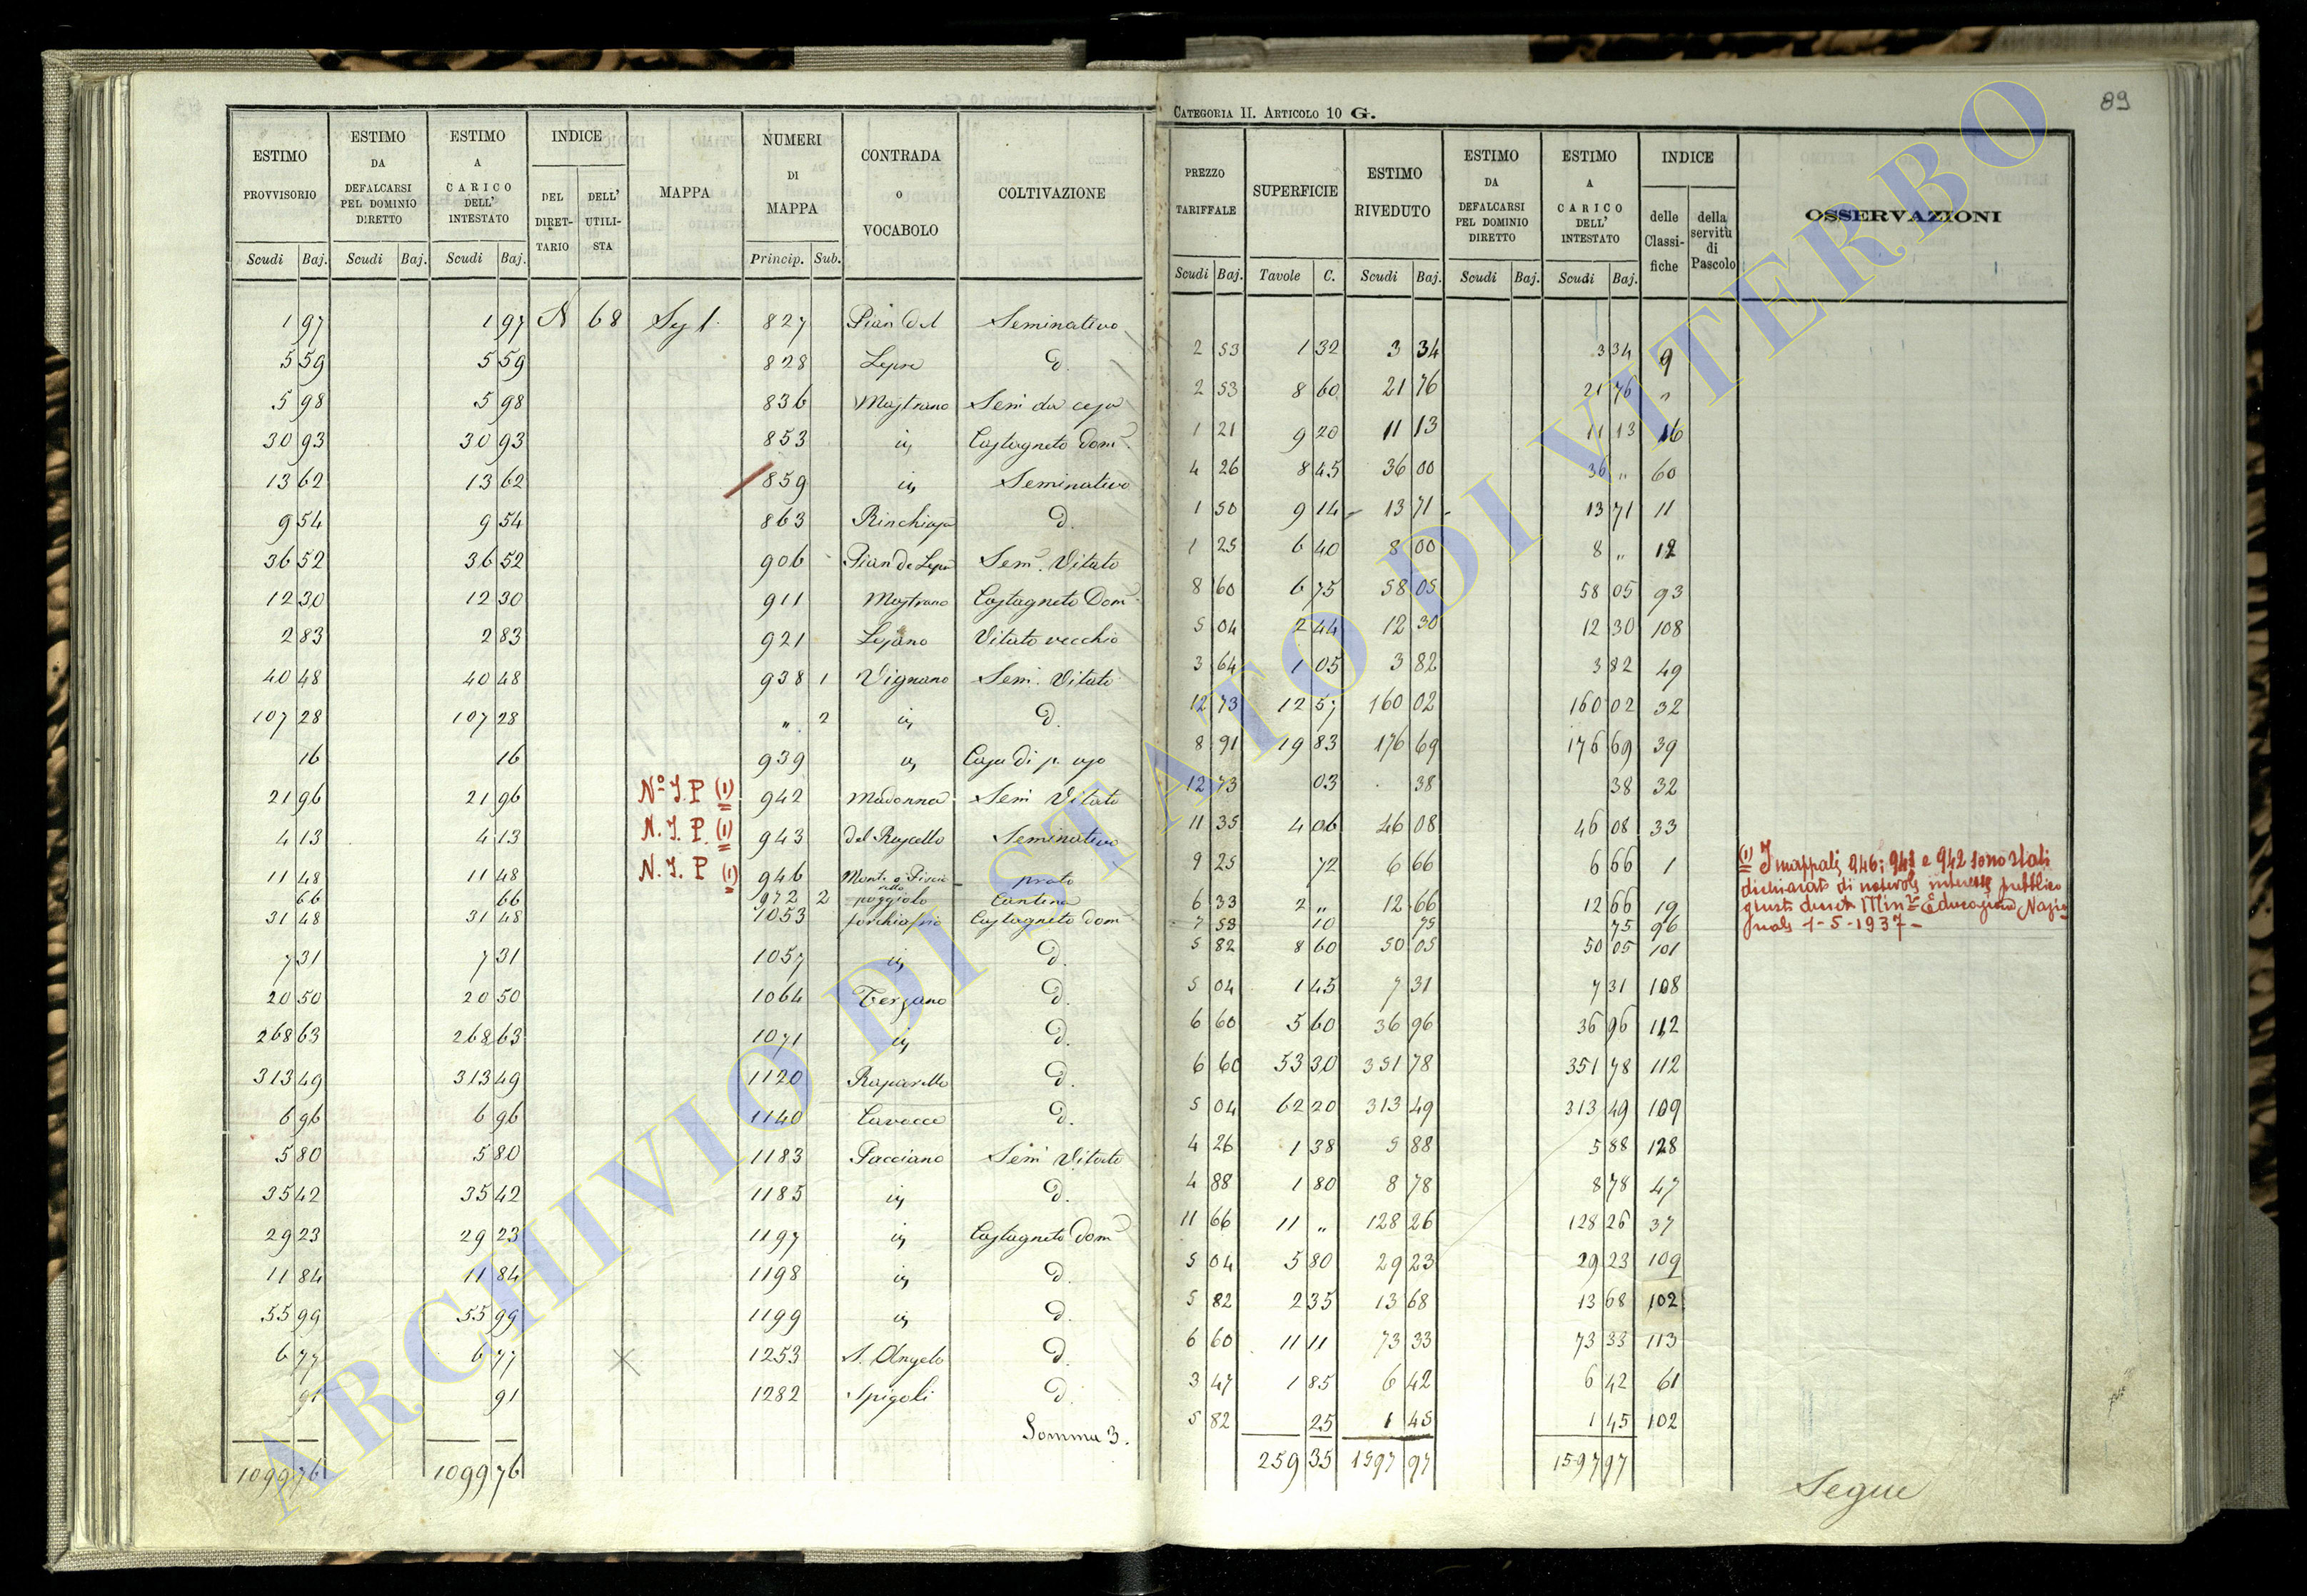 ESTIMO PROVVISORIO | ESTIMO DA DEFALCARSI PEL DOMINIO DIRETTO | ESTIMO A CARICO DELL' INTESTATO | INDICE DEL DIRETTARIO | DELL' UTILISTA | MAPPA | NUMERI DI MAPPA | CONTRADA o VOCABOLO | COLTIVAZIONE
Scudi Baj. | Scudi Baj. | Scudi Baj. | Princip. Sub.
1 97 | 1 97 | N | 68 | Seg 1. | 827 | Pian del | Seminativo
5 59 | 5 59 | 828 | Lepre | d.
5 98 | 5 98 | 836 | Mastrano | Sem
30 93 | 30 93 | 853 | Castagneto Dom.
13 62 | 13 62 | 859 | Seminativo
9 54 | 9 54 | 863 | d.
36 52 | 36 52 | 906 | Pian de Lepre | Sem. Vitato
12 30 | 12 30 | 911 | Mastrano | Castagneto Dom.
2 83 | 2 83 | 921 | Vitato vecchio
40 48 | 40 48 | 938 1 | Vignano | Sem. Vitato
107 28 | 107 28 | " 2 | d.
16 | 16 | 939 | Casa di p. uso
21 96 | 21 96 | No I. P (1) | 942 | Madonna | Sem Vitato
4 13 | 4 13 | N. I. P. (1) | 943 | del | Seminativo
11 48 | 11 48 | N. I. P (1) | 946 | Monte | prato
66 | 66 | 972 2 | poggiolo | Cantina
31 48 | 31 48 | 1053 | Castagneto Dom
7 31 | 7 31 | 1057 | d.
20 50 | 20 50 | 1064 | Terzano | d.
268 63 | 268 63 | 1071 | d.
313 49 | 313 49 | 1120 | d.
6 96 | 6 96 | 1140 | d.
5 80 | 5 80 | 1183 | Pacciano | Sem Vitato
35 42 | 35 42 | 1185 | d.
29 23 | 29 23 | 1197 | Castagneto Dom
11 84 | 11 84 | 1198 | d.
55 99 | 55 99 | 1199 | d.
6 77 | 6 77 | 1253 | S. Angelo | d.
91 | 91 | 1282 | Spigoli | d.
Somma 3.
1099 76 | 1099 76
89
CATEGORIA II. ARTICOLO 10 G.
PREZZO TARIFFALE | SUPERFICIE | ESTIMO RIVEDUTO | ESTIMO DA DEFALCARSI PEL DOMINIO DIRETTO | ESTIMO A CARICO DELL' INTESTATO | INDICE delle Classifiche | della servitù di Pascolo | OSSERVAZIONI
Scudi Baj. | Tavole C. | Scudi Baj. | Scudi Baj. | Scudi Baj.
2 53 | 1 32 | 3 34 | 3 34 | 9
2 53 | 8 60 | 21 76 | 21 76 | "
1 21 | 9 20 | 11 13 | 11 13 | 16
4 26 | 8 45 | 36 00 | 36 " | 60
1 50 | 9 14 | 13 71 | 13 71 | 11
1 25 | 6 40 | 8 00 | 8 " | 12
8 60 | 6 75 | 58 05 | 58 05 | 93
5 04 | 2 44 | 12 30 | 12 30 | 108
3 64 | 1 05 | 3 82 | 3 82 | 49
12 73 | 12 57 | 160 02 | 160 02 | 32
8 91 | 19 83 | 176 69 | 176 69 | 39
12 73 | 03 | 38 | 38 | 32
11 35 | 4 06 | 46 08 | 46 08 | 33
9 25 | 72 | 6 66 | 6 66 | 1
6 33 | 2 " | 12 66 | 12 66 | 19
7 53 | 10 | 75 | 75 | 96
5 82 | 8 60 | 50 05 | 50 05 | 101
5 04 | 1 45 | 7 31 | 7 31 | 108
6 60 | 5 60 | 36 96 | 36 96 | 112
6 60 | 53 30 | 351 78 | 351 78 | 112
5 04 | 62 20 | 313 49 | 313 49 | 109
4 26 | 1 38 | 5 88 | 5 88 | 128
4 88 | 1 80 | 8 78 | 8 78 | 47
11 66 | 11 " | 128 26 | 128 26 | 37
5 04 | 5 80 | 29 23 | 29 23 | 109
5 82 | 2 35 | 13 68 | 13 68 | 102
6 60 | 11 11 | 73 33 | 73 33 | 113
3 47 | 1 85 | 6 42 | 6 42 | 61
5 82 | 25 | 1 45 | 1 45 | 102
259 35 | 1597 97 | 1597 97
(1) I mappali 946; 943 e 942 sono stati
dichiarati di notevole interesse pubblico
giusto decreto Min. Educazione Nazio
nale 1-5-1937-
Segue
ARCHIVIO DI STATO DI VITERBO